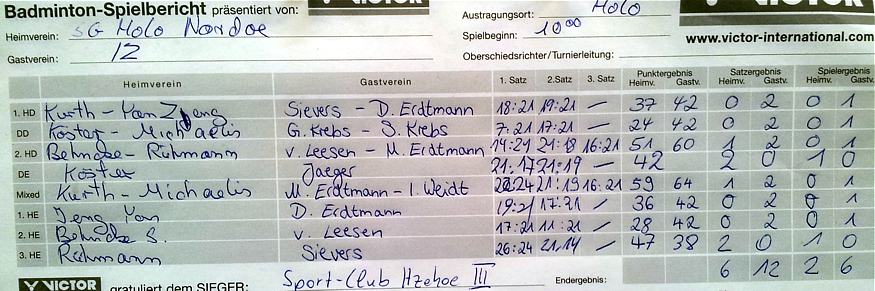 Badminton-Spielbericht präsentiert von: VICTOR Austragungsort: Holo
Heimverein: SG Holo Nordoe Spielbeginn: 10⁰⁰ www.victor-international.com
Gastverein: IZ Oberschiedsrichter/Turnierleitung:
Heimverein Gastverein 1. Satz 2.Satz 3. Satz Punktergebnis Heimv. Gastv. Satzergebnis Heimv. Gastv. Spielergebnis Heimv. Gastv.
1. HD Kurth - Sievers - D. Erdtmann 18:21 19:21 — 37 42 0 2 0 1
DD Köster - Michaelis G. Krebs - S. Krebs 7:21 17:21 — 24 42 0 2 0 1
2. HD Behncke - Rühmann v. Leesen - M. Erdtmann 14:21 21:18 16:21 51 60 1 2 0 1
DE Köster Jaeger 21:17 21:19 — 42 2 0 1 0
Mixed Kurth - Michaelis M. Erdtmann - I. Weidt 22:24 21:19 16:21 59 64 1 2 0 1
1. HE Yan D. Erdtmann 19:21 17:21 — 36 42 0 2 0 1
2. HE Behncke S. v. Leesen 17:21 11:21 — 28 42 0 2 0 1
3. HE Rühmann Sievers 26:24 21:14 — 47 38 2 0 1 0
6 12 2 6
VICTOR gratuliert dem SIEGER: Sport-Club Itzehoe III Endergebnis: